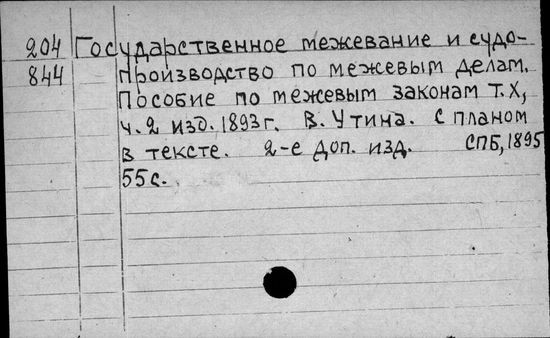 204 Государственное межевание и судо-
844 производство по межевым делам.
Пособие по межевым законам т. X,
ч. 2 изд. 1893 г. В. Утина. С планом
в тексте. 2-е доп. изд. СПБ, 1895
55 с.